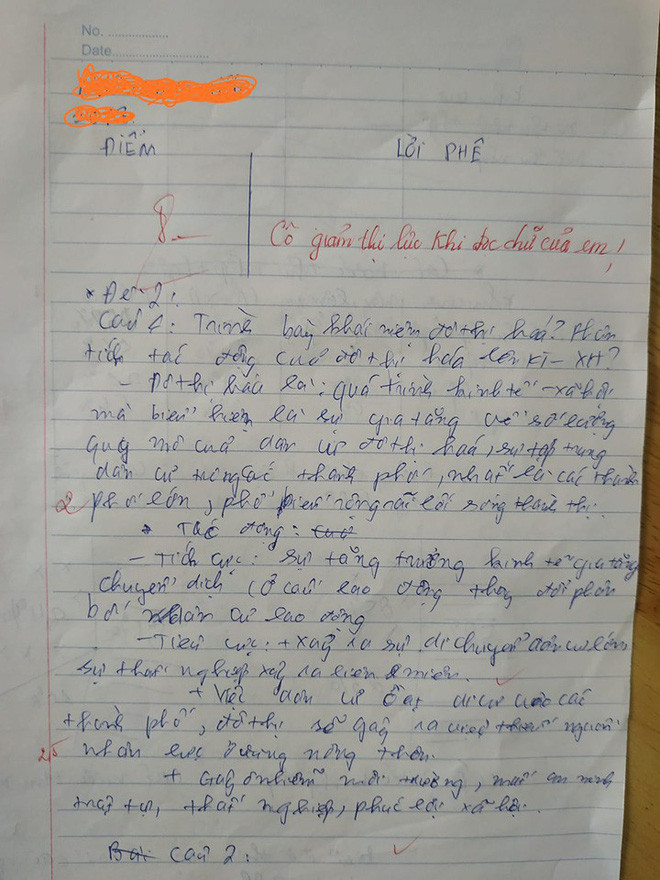 No. ..................
Date..........................
ĐIỂM
LỜI PHÊ
8._
Cô giảm thị lực khi đọc chữ của em!
* Đề 2:
Câu 1: Trình bày khái niệm đô thị hoá? Phân
tích tác động của đô thị hóa lên KT - XH?
- Đô thị hóa là: quá trình kinh tế - xã hội
mà biểu hiện là sự gia tăng về số lượng
quy mô của dân cư đô thị hoá, sự tập trung
dân cư trong các thành phố, nhất là các thành
2 phố lớn, phổ biến rộng rãi lối sống thành thị.
* Tác động:
- Tích cực: sự tăng trưởng kinh tế gia tăng
chuyển dịch cơ cấu lao động thay đổi phân
bố dân cư lao động
- Tiêu cực: + xảy ra sự di chuyển dân cư lớn
sự thất nghiệp xảy ra
+ Việc dân cư ồ ạt di cư vào các
thành phố, đô thị sẽ gây ra việc nguồn
2,5 nhân lực ở vùng nông thôn.
+ Gây ô nhiễm môi trường, mất an ninh
trật tự, thất nghiệp, phúc lợi xã hội.
Bài Câu 2: